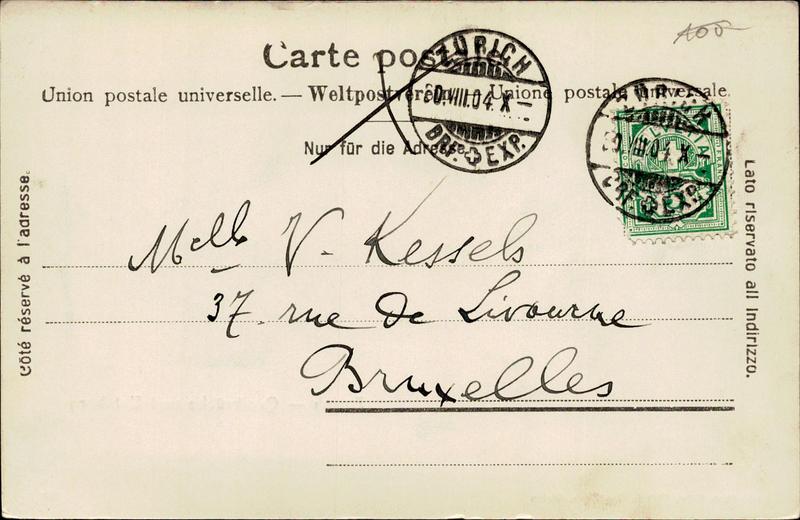 100
Carte postale
Union postale universelle. — Weltpostverein — Unione postale universale.
Nur für die Adresse
ZÜRICH
30.VIII.04.X—
BRF. EXP.
ZÜRICH
30.VIII.04.X—
BRF. EXP.
Côté réservé à l'adresse.
Lato riservato all indirizzo.
Melle V. Kessels
37. rue de Livourne
Bruxelles